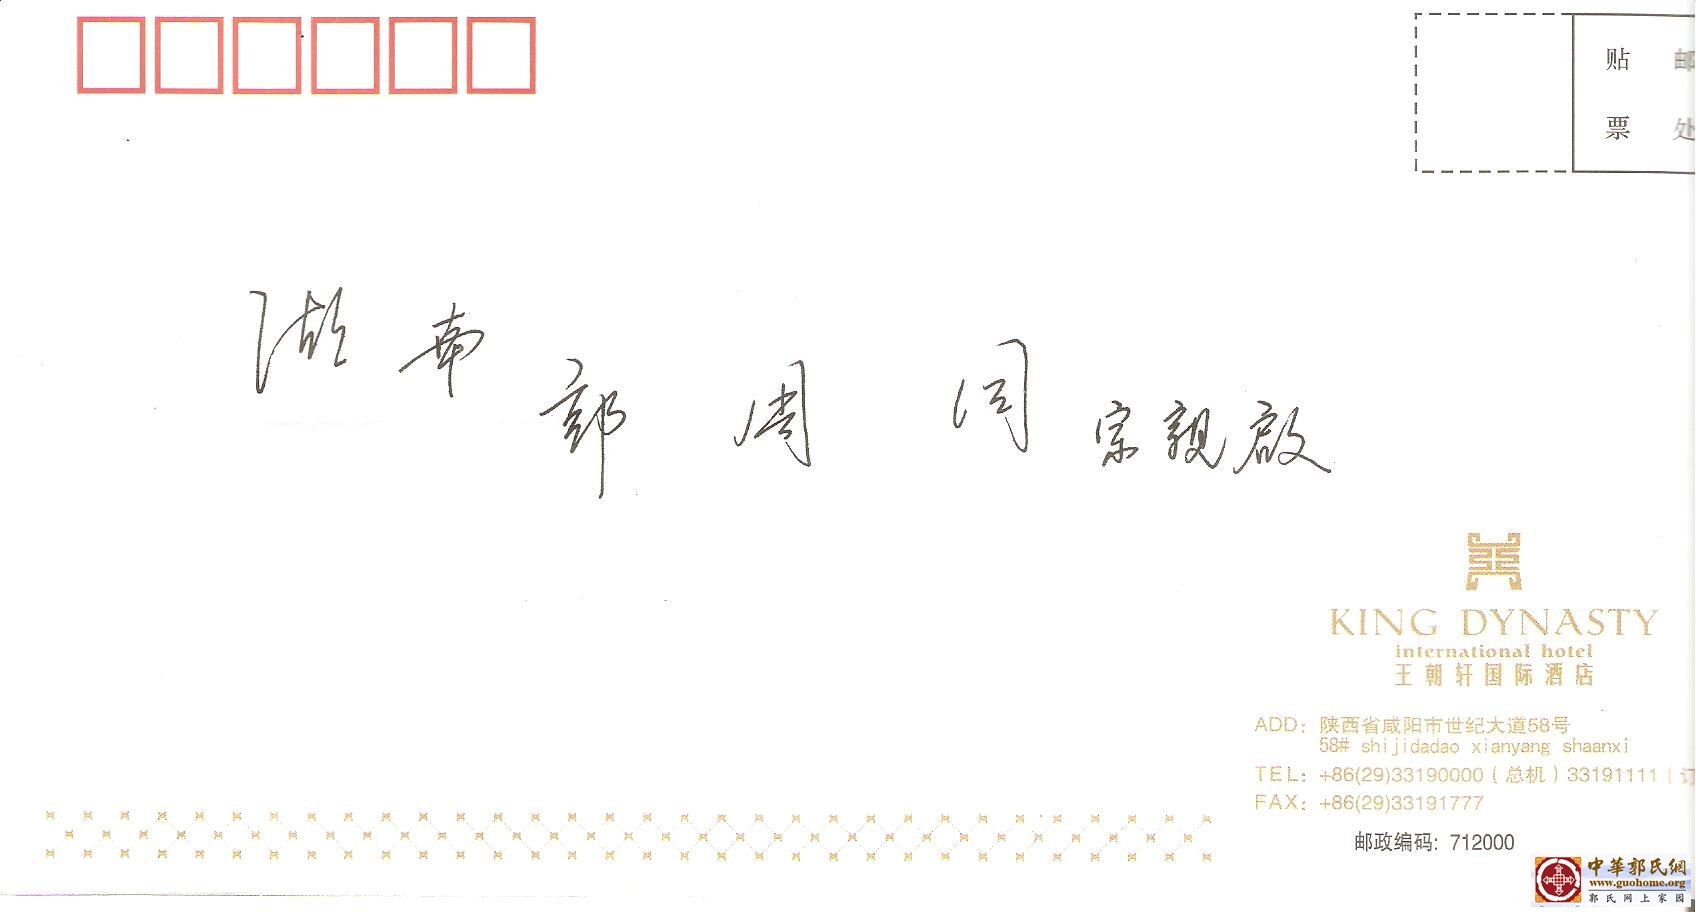 贴 邮
票 处
湖南 郭周闫宗親啟
KING DYNASTY
international hotel
王朝轩国际酒店
ADD: 陕西省咸阳市世纪大道58号
58# shijidadao xianyang shaanxi
TEL: +86(29)33190000 (总机) 33191111 (订
FAX: +86(29)33191777
邮政编码: 712000
中華郭氏網
www.guohome.org
郭氏网上家园